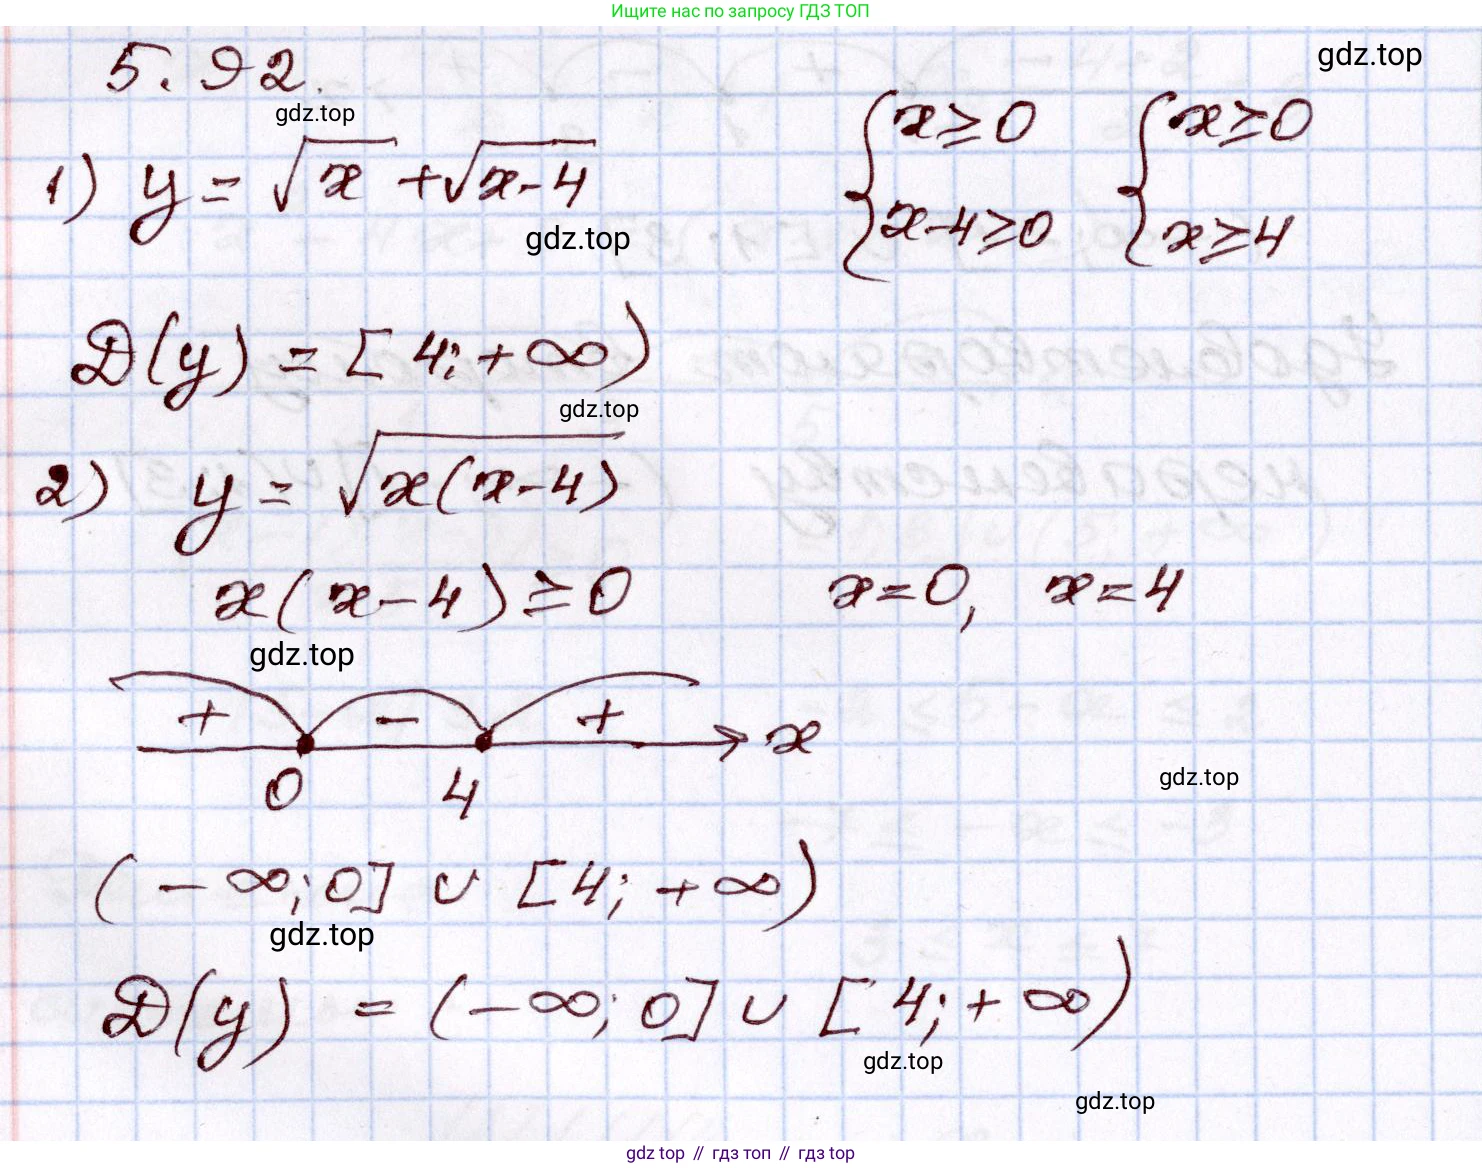 Ищите нас по запросу ГДЗ ТОП
5.92.
gdz.top
gdz.top
1) y = √x + √x-4
{x≥0
x-4≥0
{x≥0
x≥4
gdz.top
D(y) = [4; +∞)
gdz.top
2) y = √x(x-4)
x(x-4) ≥ 0 x=0, x=4
gdz.top
+ - + x
0 4
gdz.top
(-∞; 0] ∪ [4; +∞)
gdz.top
D(y) = (-∞; 0] ∪ [4; +∞)
gdz.top
gdz.top
gdz top // гдз топ // гдз top